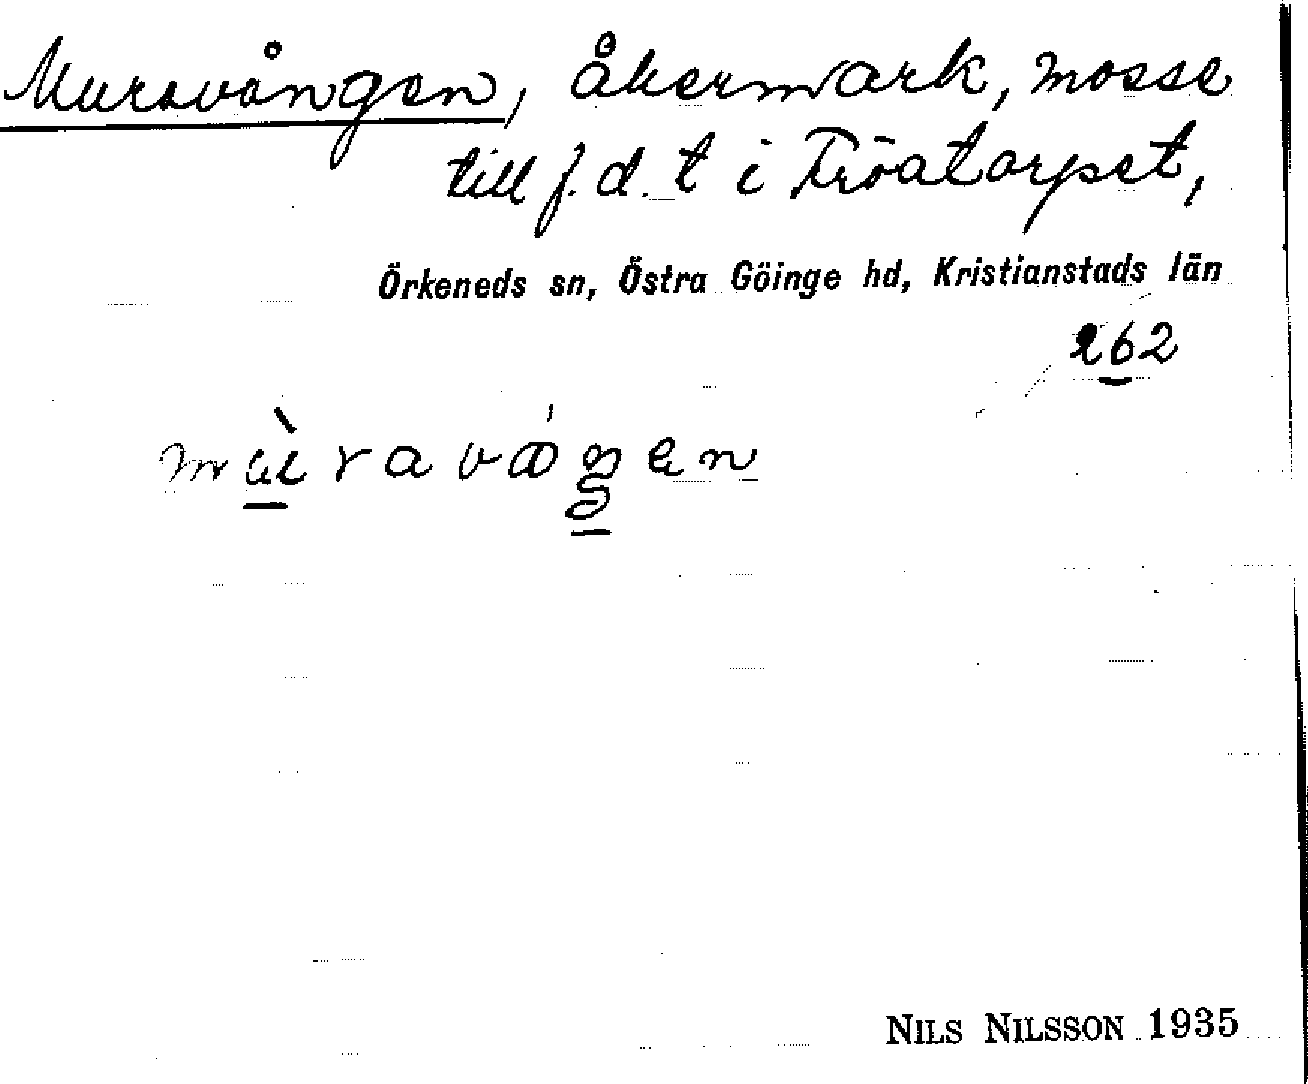 Muravången, åkermark, mosse
till f.d. t i Tröatorpet,
Örkeneds sn, Östra Göinge hd, Kristianstads län
262
NILS NILSSON 1935